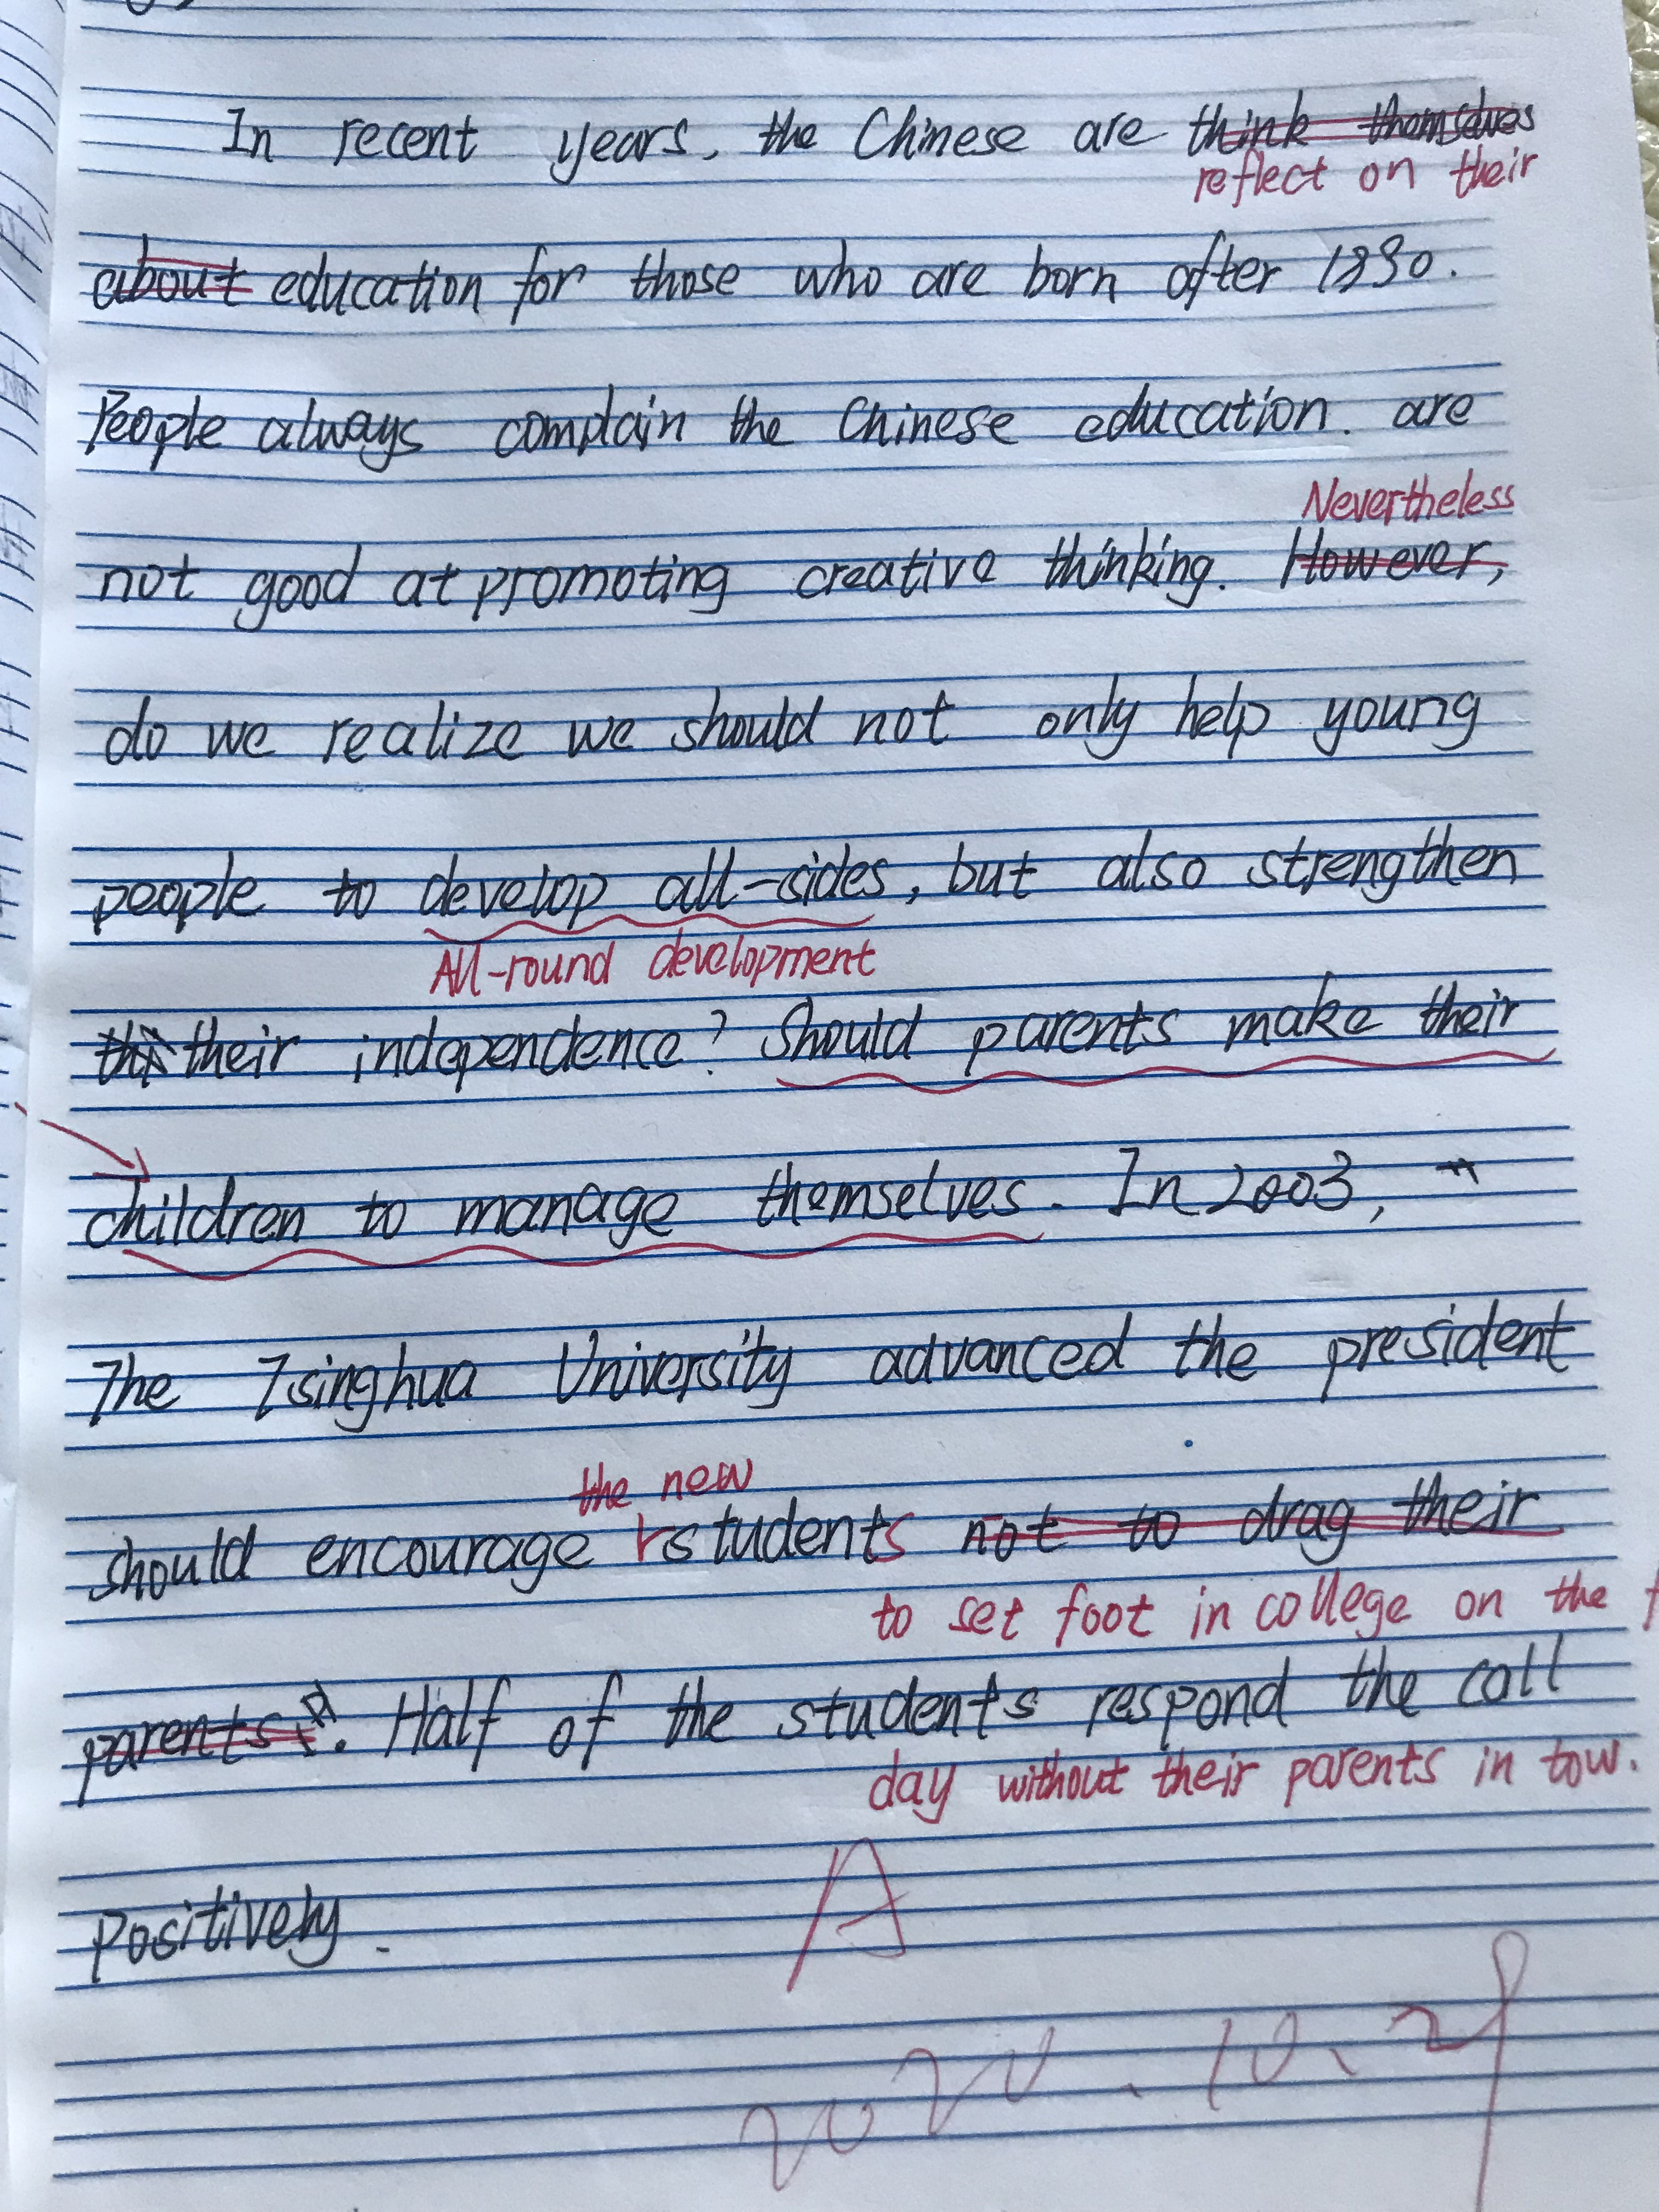 In recent years, the Chinese are think themselves
reflect on their
about education for those who are born after 1990.
People always complain the Chinese education. are
Nevertheless
not good at promoting creative thinking. However,
do we realize we should not only help young
people to develop all-sides, but also strengthen
All-round development
their independence? Should parents make their
children to manage themselves. In 2003, "
The Tsinghua University advanced the president
the new
should encourage students not to drag their
to set foot in college on the
parents." Half of the students respond the call
day without their parents in tow.
Positively.
A
2020.10.29